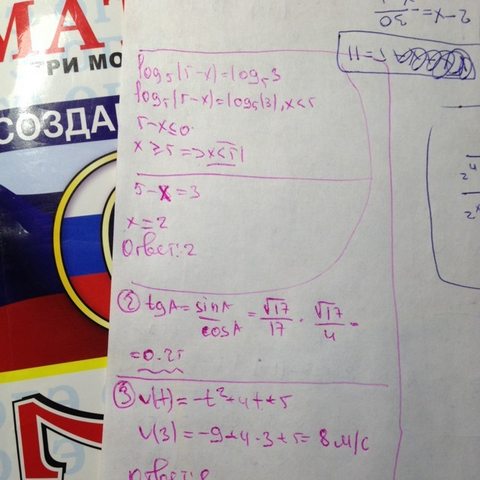 МАТ
ТРИ МО
СОЗДА
log₅(5-x)=log₅3
log₅(5-x)=log₅(3), x<5
5-x≤0
x≥5=>x<5
5-x=3
x=2
Ответ: 2
② tgA=sinA/cosA=√17/17·√17/4=
=0.25
③ v(t)=-t²+4t+5
v(3)=-9+4·3+5=8м/с
Ответ: 8
2-x=
30
5=11